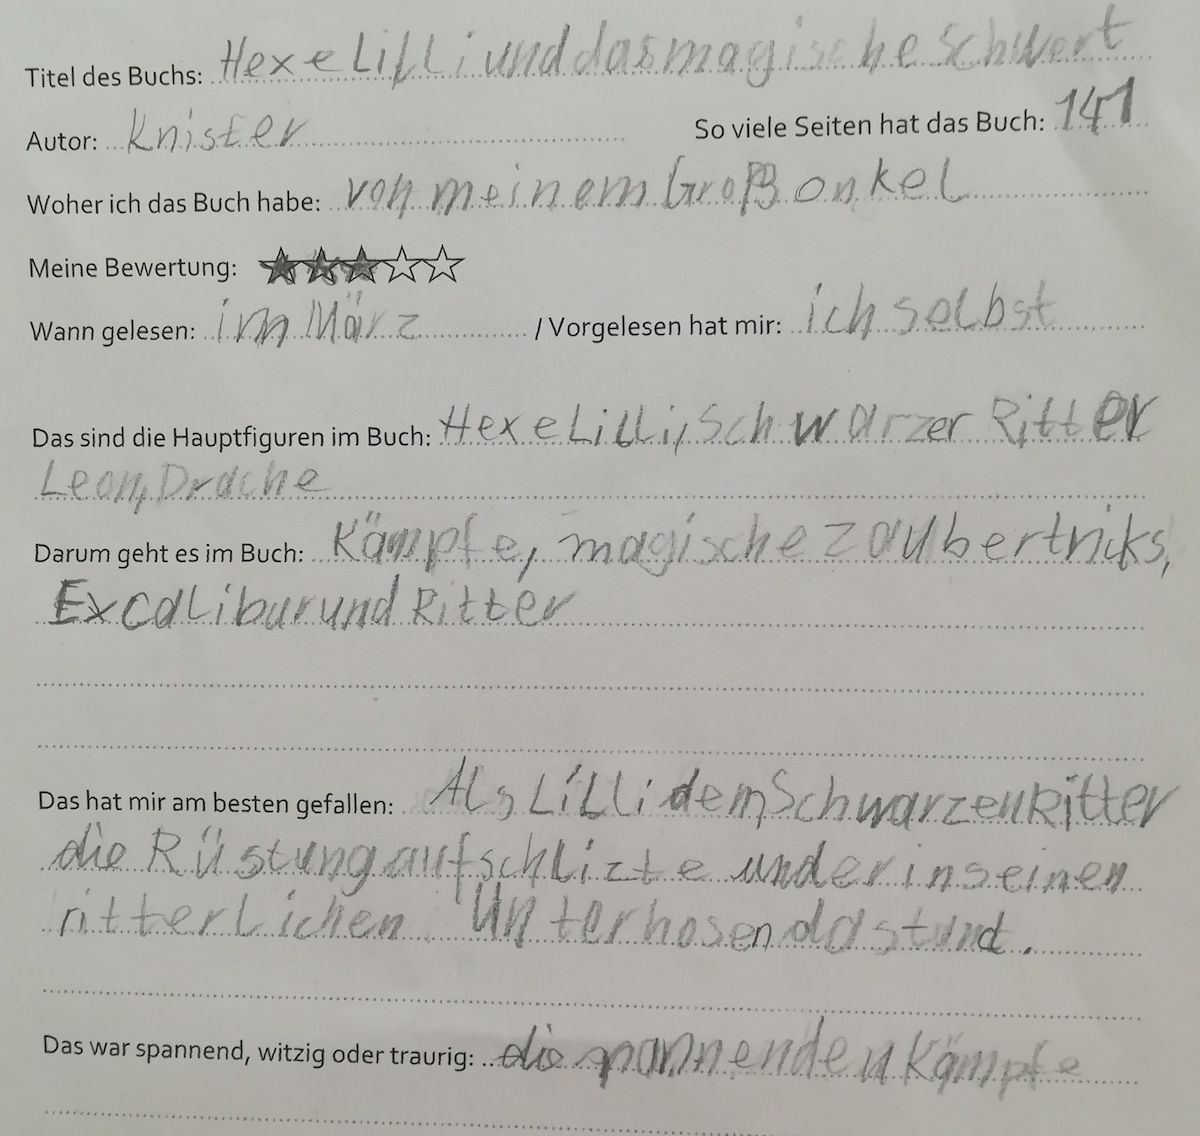 Titel des Buchs: Hexe Lilli und das magische Schwert
Autor: Knister So viele Seiten hat das Buch: 141
Woher ich das Buch habe: von meinem Großonkel
Meine Bewertung:
Wann gelesen: im März / Vorgelesen hat mir: ich selbst
Das sind die Hauptfiguren im Buch: Hexe Lilli, Schwarzer Ritter
Leon, Drache
Darum geht es im Buch: Kämpfe, magische Zaubertricks,
Excalibur und Ritter
Das hat mir am besten gefallen: Als Lilli dem Schwarzen Ritter
die Rüstung aufschlizte und er in seinen
ritterlichen Unterhosen dastand.
Das war spannend, witzig oder traurig: die spannenden Kämpfe